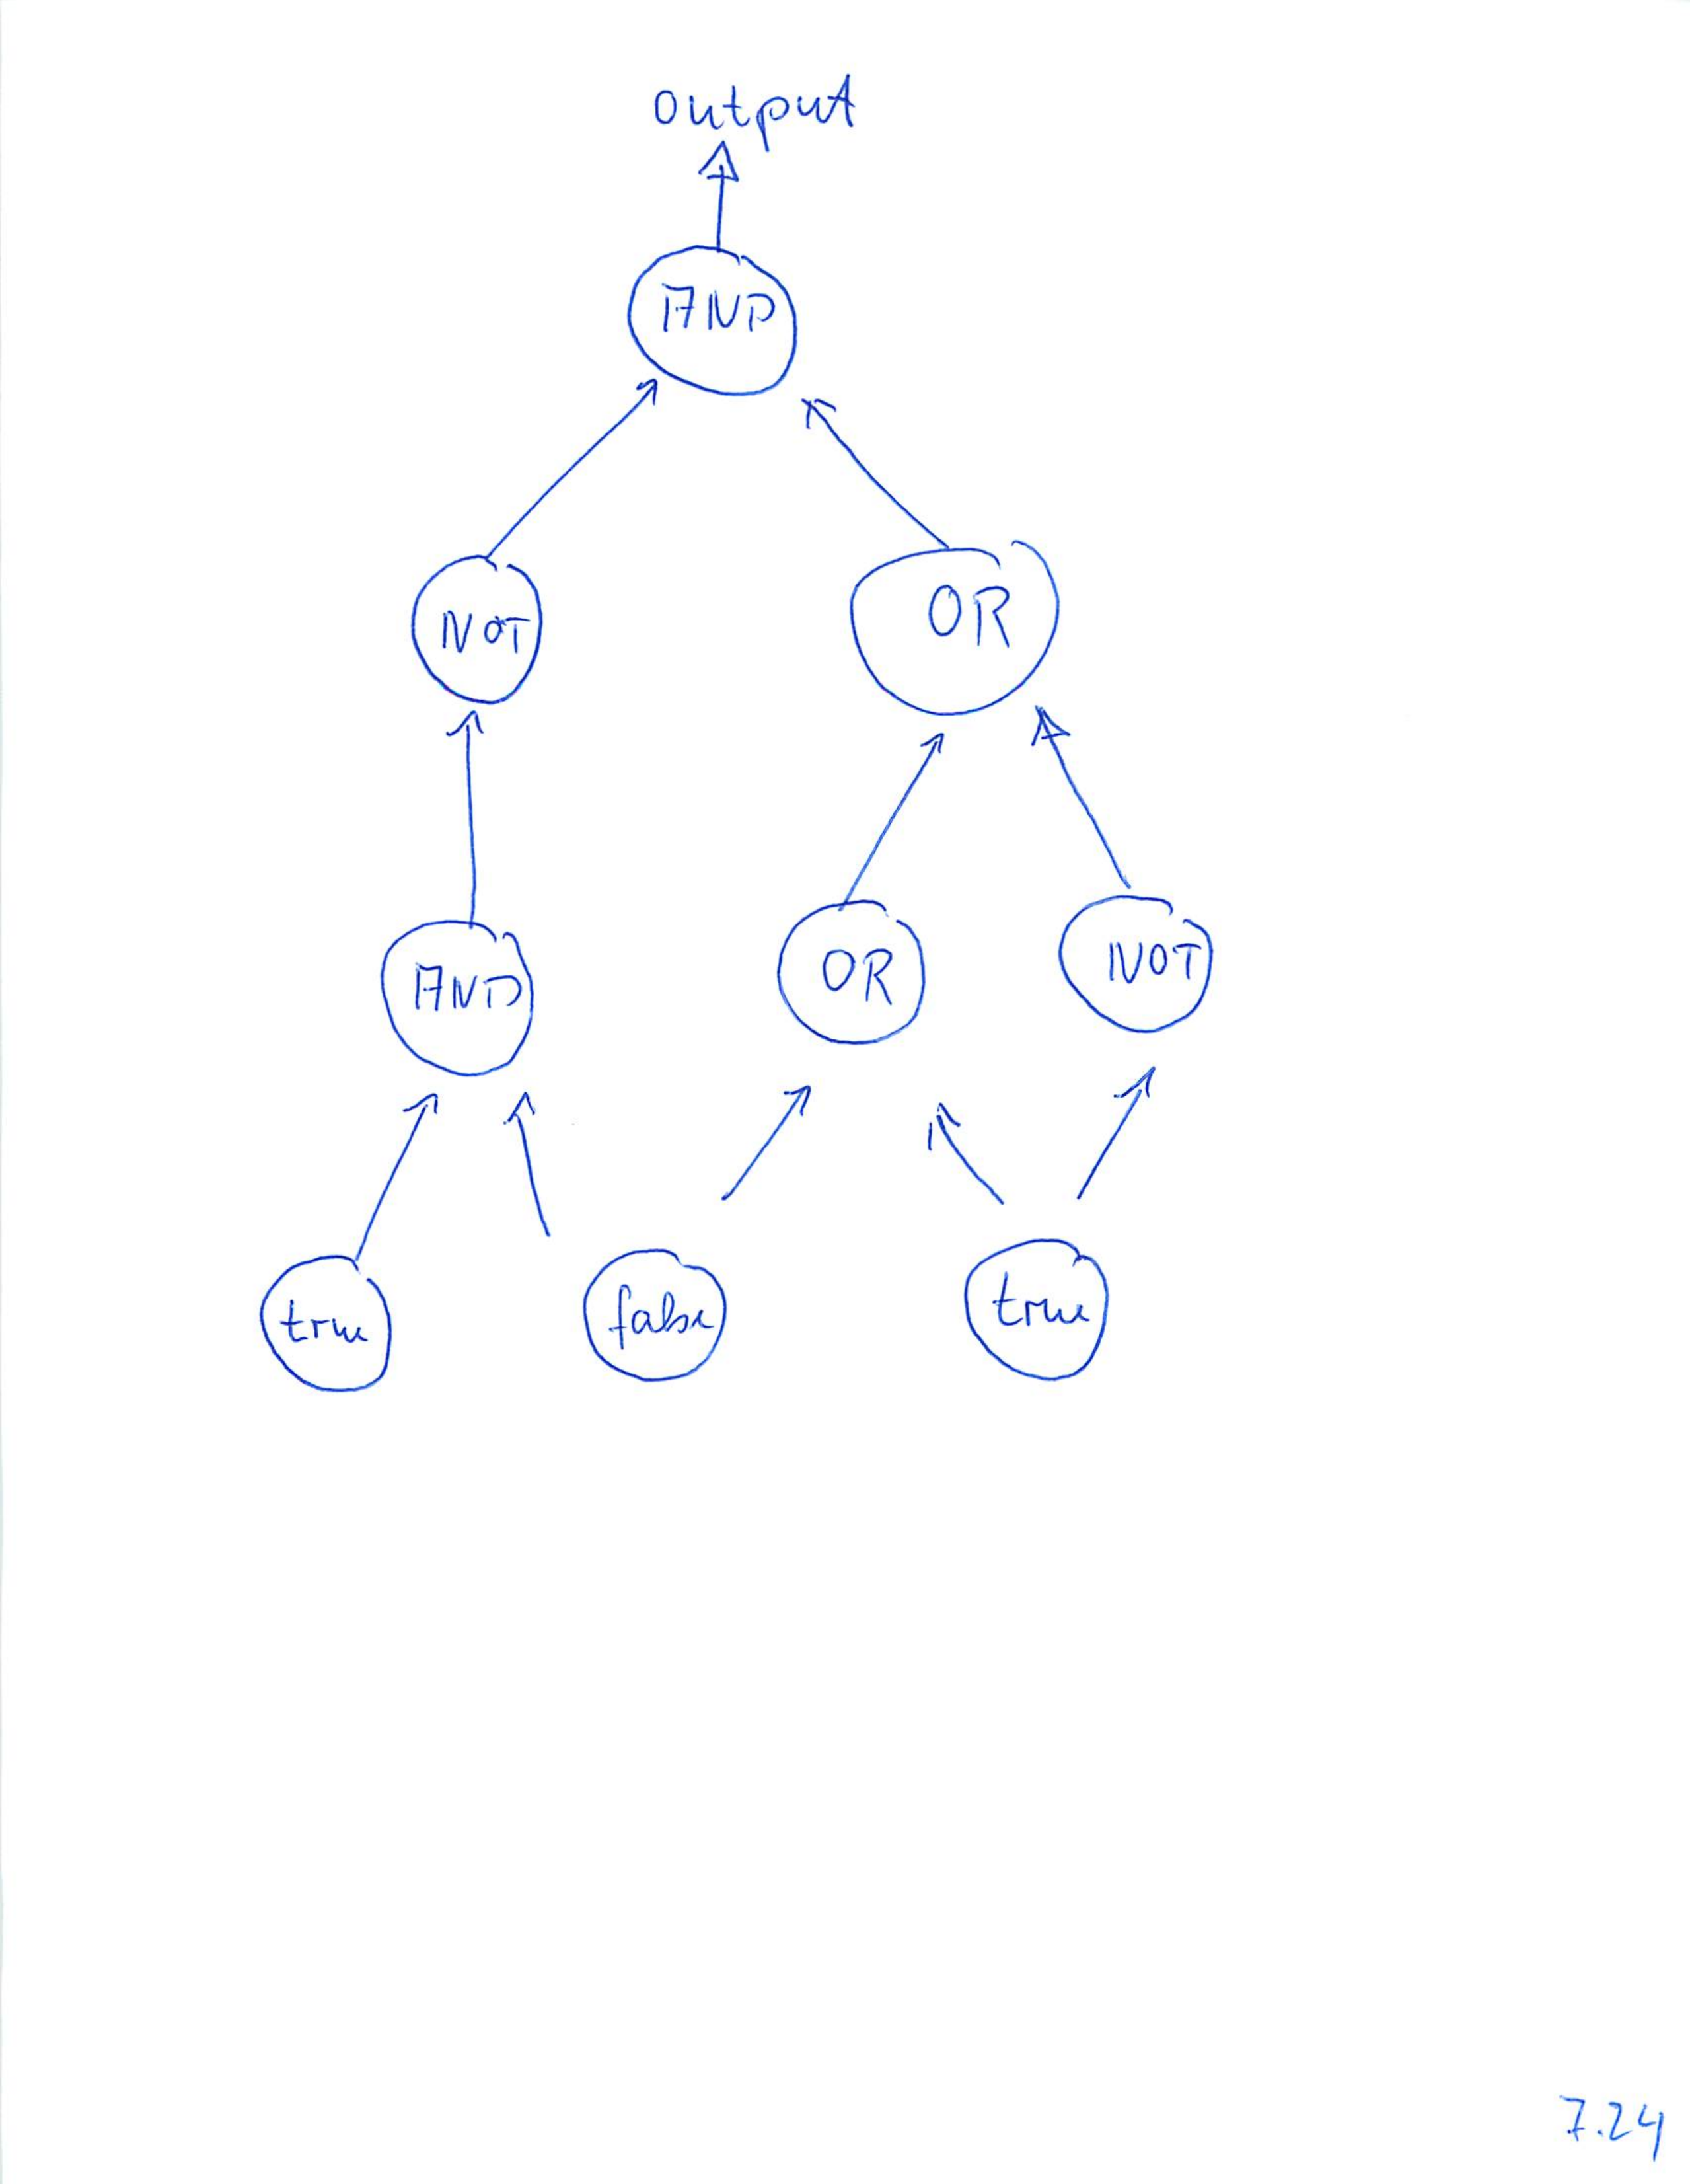 output
AND
NOT
OR
AND
OR
NOT
true
false
true
7.24